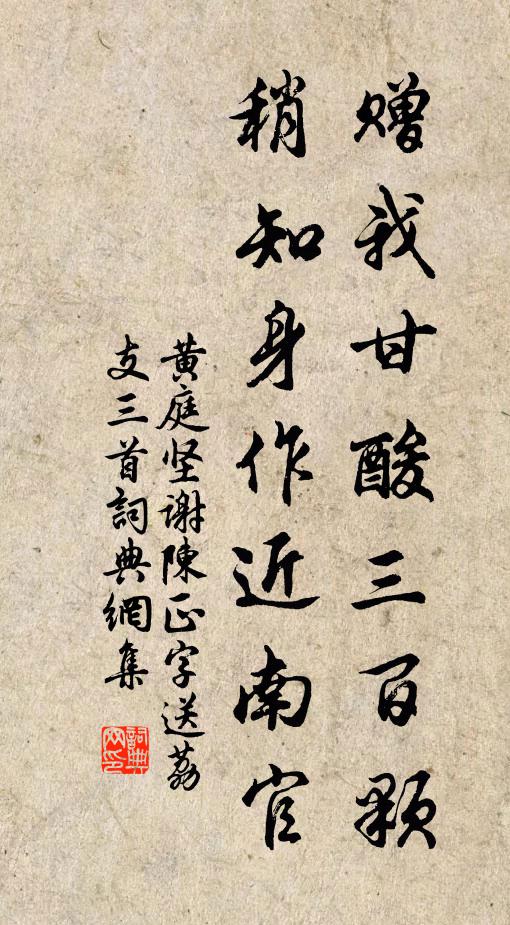 赠我甘酸三百颗
稍知身作近南官
黄庭坚谢陳正字送荔
支三首詞典網集
詞典网印